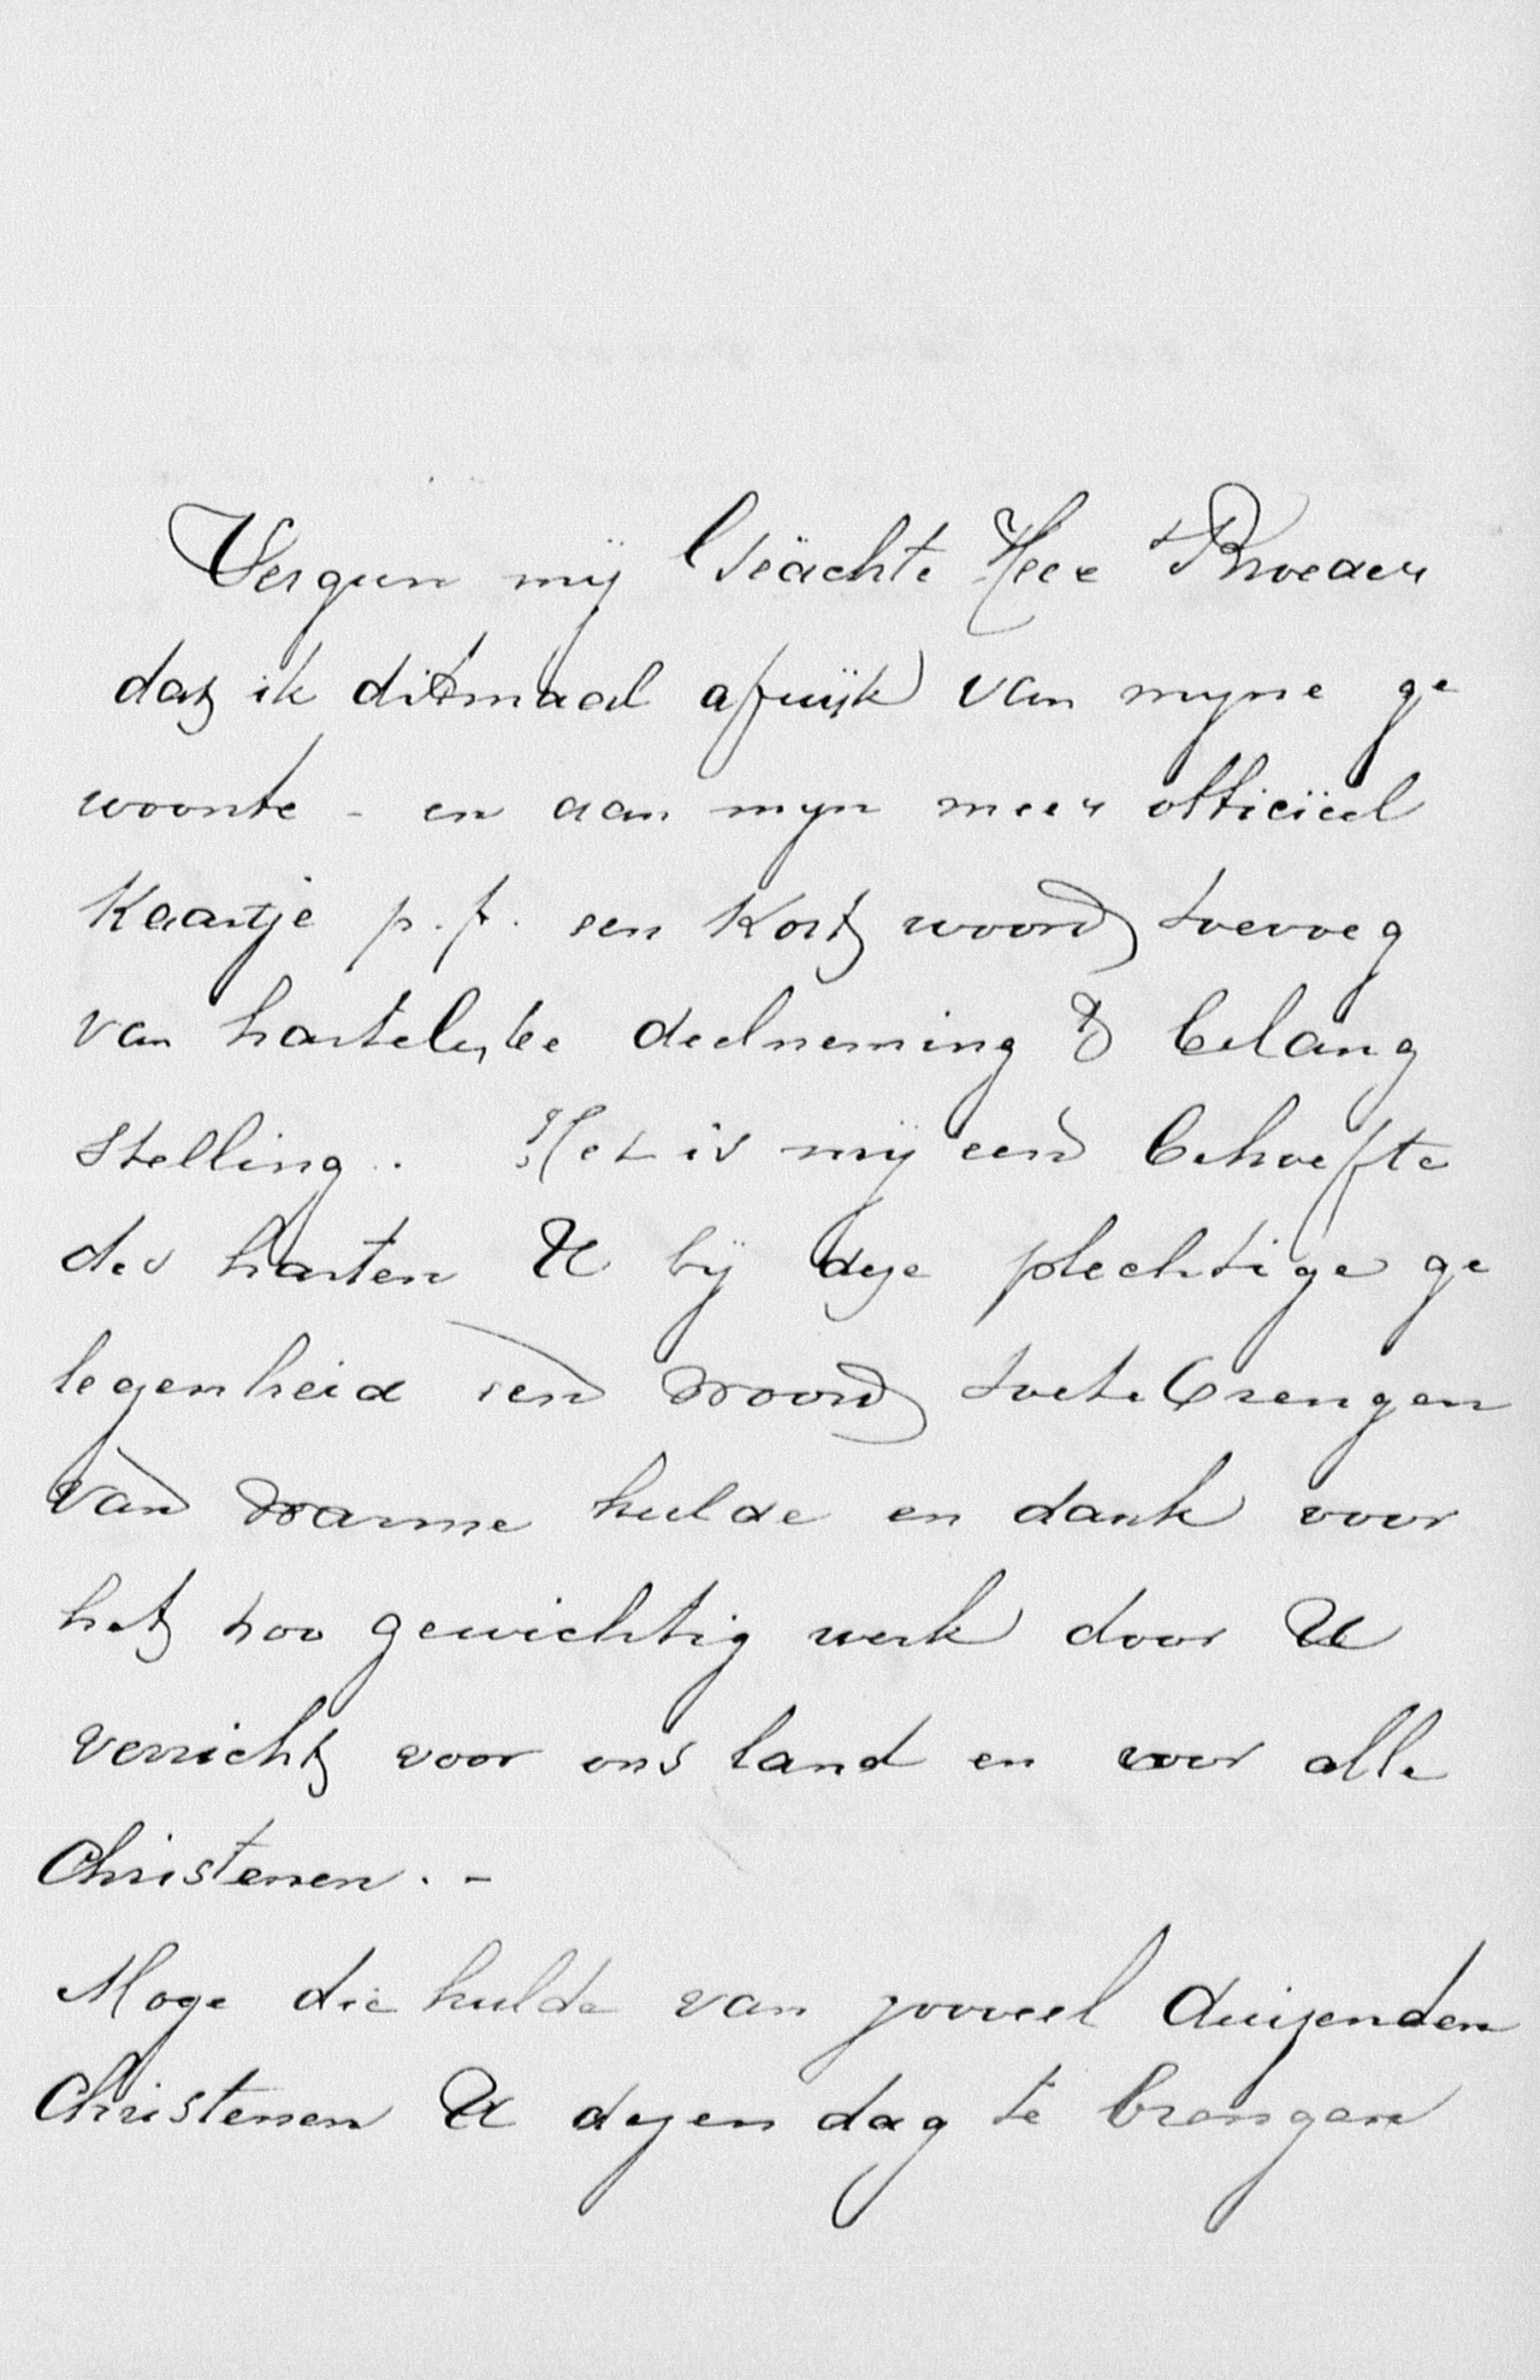 Vergun mij Geächte Heer & Broeder
dat ik ditmaal afwijk van myne ge
woonte - en aan myn meer officiëel
Kaartje p.f. een Kort woord toevoeg
van hartelyke deelneming & belang
stelling. Het is mij een behoefte
des harten U bij deze plechtige ge
legenheid een woord toetebrengen
van warme hulde en dank voor
het zoo gewichtig werk door U
verricht voor ons land en voor alle
Christenen. -
Moge die hulde van zooveel duizenden
Christenen U dezen dag te brengen